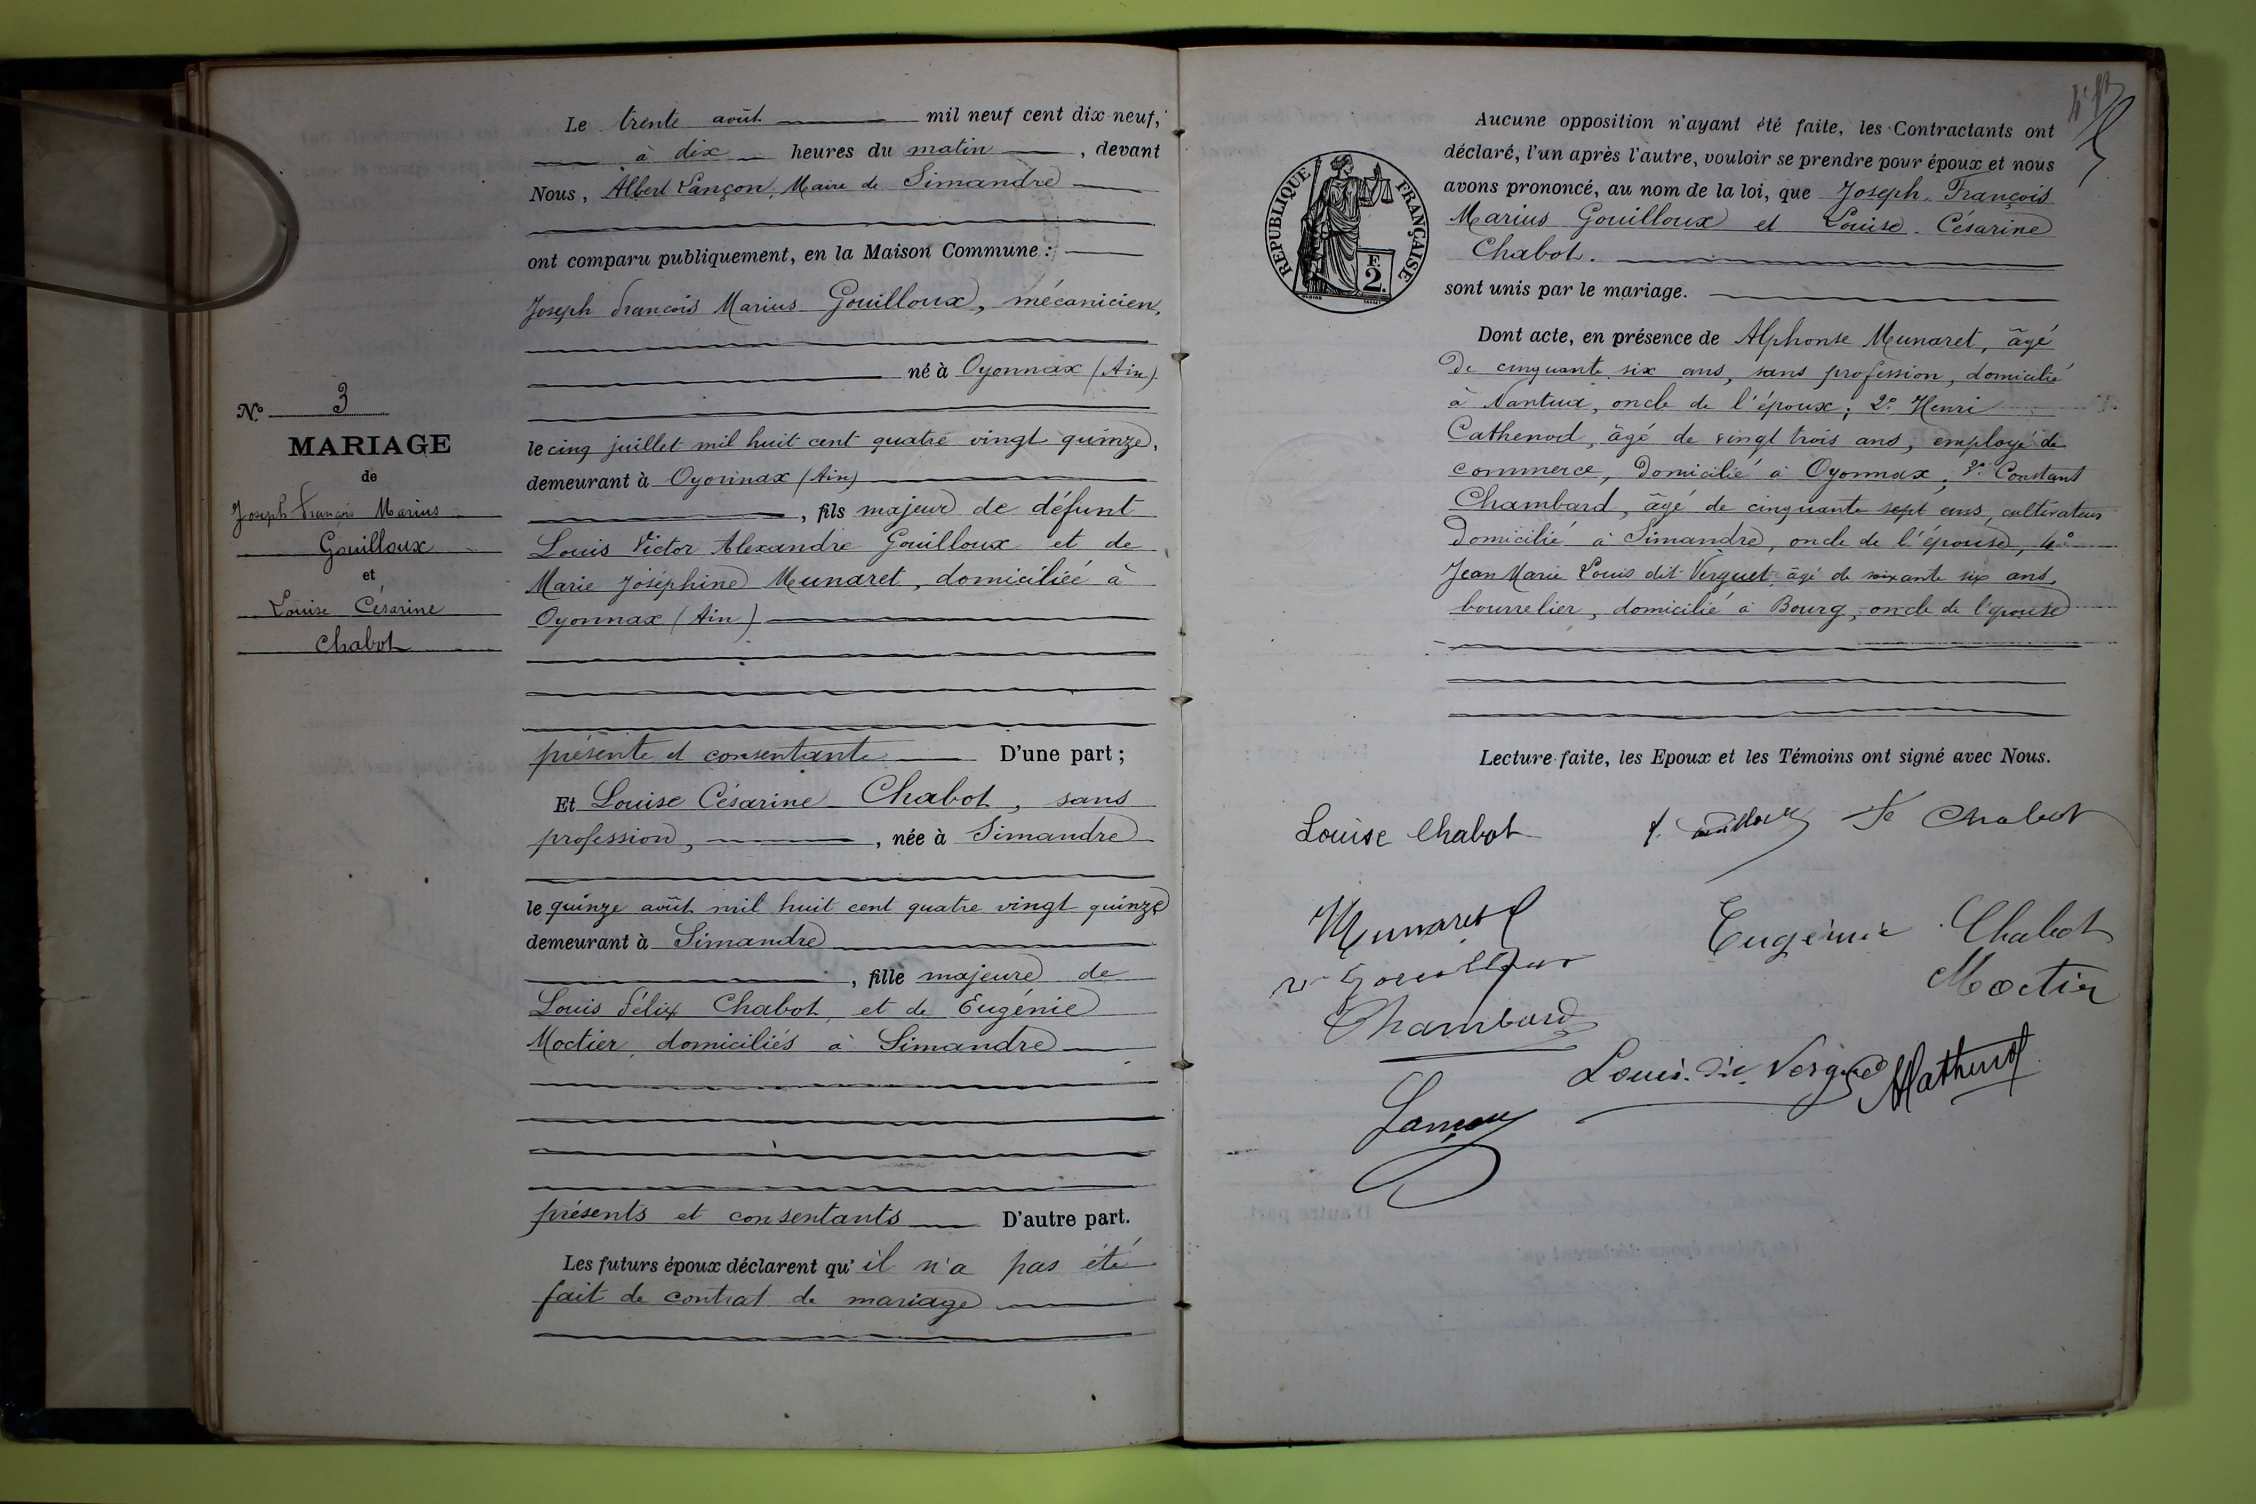 Le trente août mil neuf cent dix-neuf,
à dix heures du matin, devant
Nous, Albert Lançon, Maire de Simandre
ont comparu publiquement, en la Maison Commune :
Joseph François Marius Gouilloux, mécanicien,
né à Oyonnax (Ain).
le cinq juillet mil huit cent quatre vingt quinze,
demeurant à Oyonnax (Ain)
, fils majeur de défunt
Louis Victor Alexandre Gouilloux et de
Marie Joséphine Munaret, domiciliée à
Oyonnax (Ain)
présente et consentante D'une part ;
Et Louise Césarine Chabot, sans
profession, , née à Simandre
le quinze août mil huit cent quatre vingt quinze
demeurant à Simandre
, fille majeure de
Louis Félix Chabot et de Eugénie
Moctier domiciliés à Simandre
présents et consentants D'autre part.
Les futurs époux déclarent qu'il n'a pas été
fait de contrat de mariage
N° 3
MARIAGE
de
Joseph François Marius
Gouilloux
et
Louise Césarine
Chabot
REPUBLIQUE FRANÇAISE
F.
2.
Aucune opposition n'ayant été faite, les Contractants ont
déclaré, l'un après l'autre, vouloir se prendre pour époux et nous
avons prononcé, au nom de la loi, que Joseph François
Marius Gouilloux et Louise Césarine
Chabot.
sont unis par le mariage.
Dont acte, en présence de Alphonse Munaret, âgé
de cinquante six ans, sans profession, domicilié
à Nantua, oncle de l'époux ; 2° Henri
Cathenod, âgé de vingt trois ans, employé de
commerce, domicilié à Oyonnax, Constant
Chambard, âgé de cinquante sept ans, cultivateur
domicilié à Simandre, oncle de l'épouse, 4°
Jean Marie Louis dit Verguet âgé de soixante six ans,
bourrelier, domicilié à Bourg, oncle de l'épouse
Lecture faite, les Epoux et les Témoins ont signé avec Nous.
Louise Chabot
Chabot
Munaret
Eugénie Chabot
Moctier
Chambard
Louis dit Verguet
Lançon